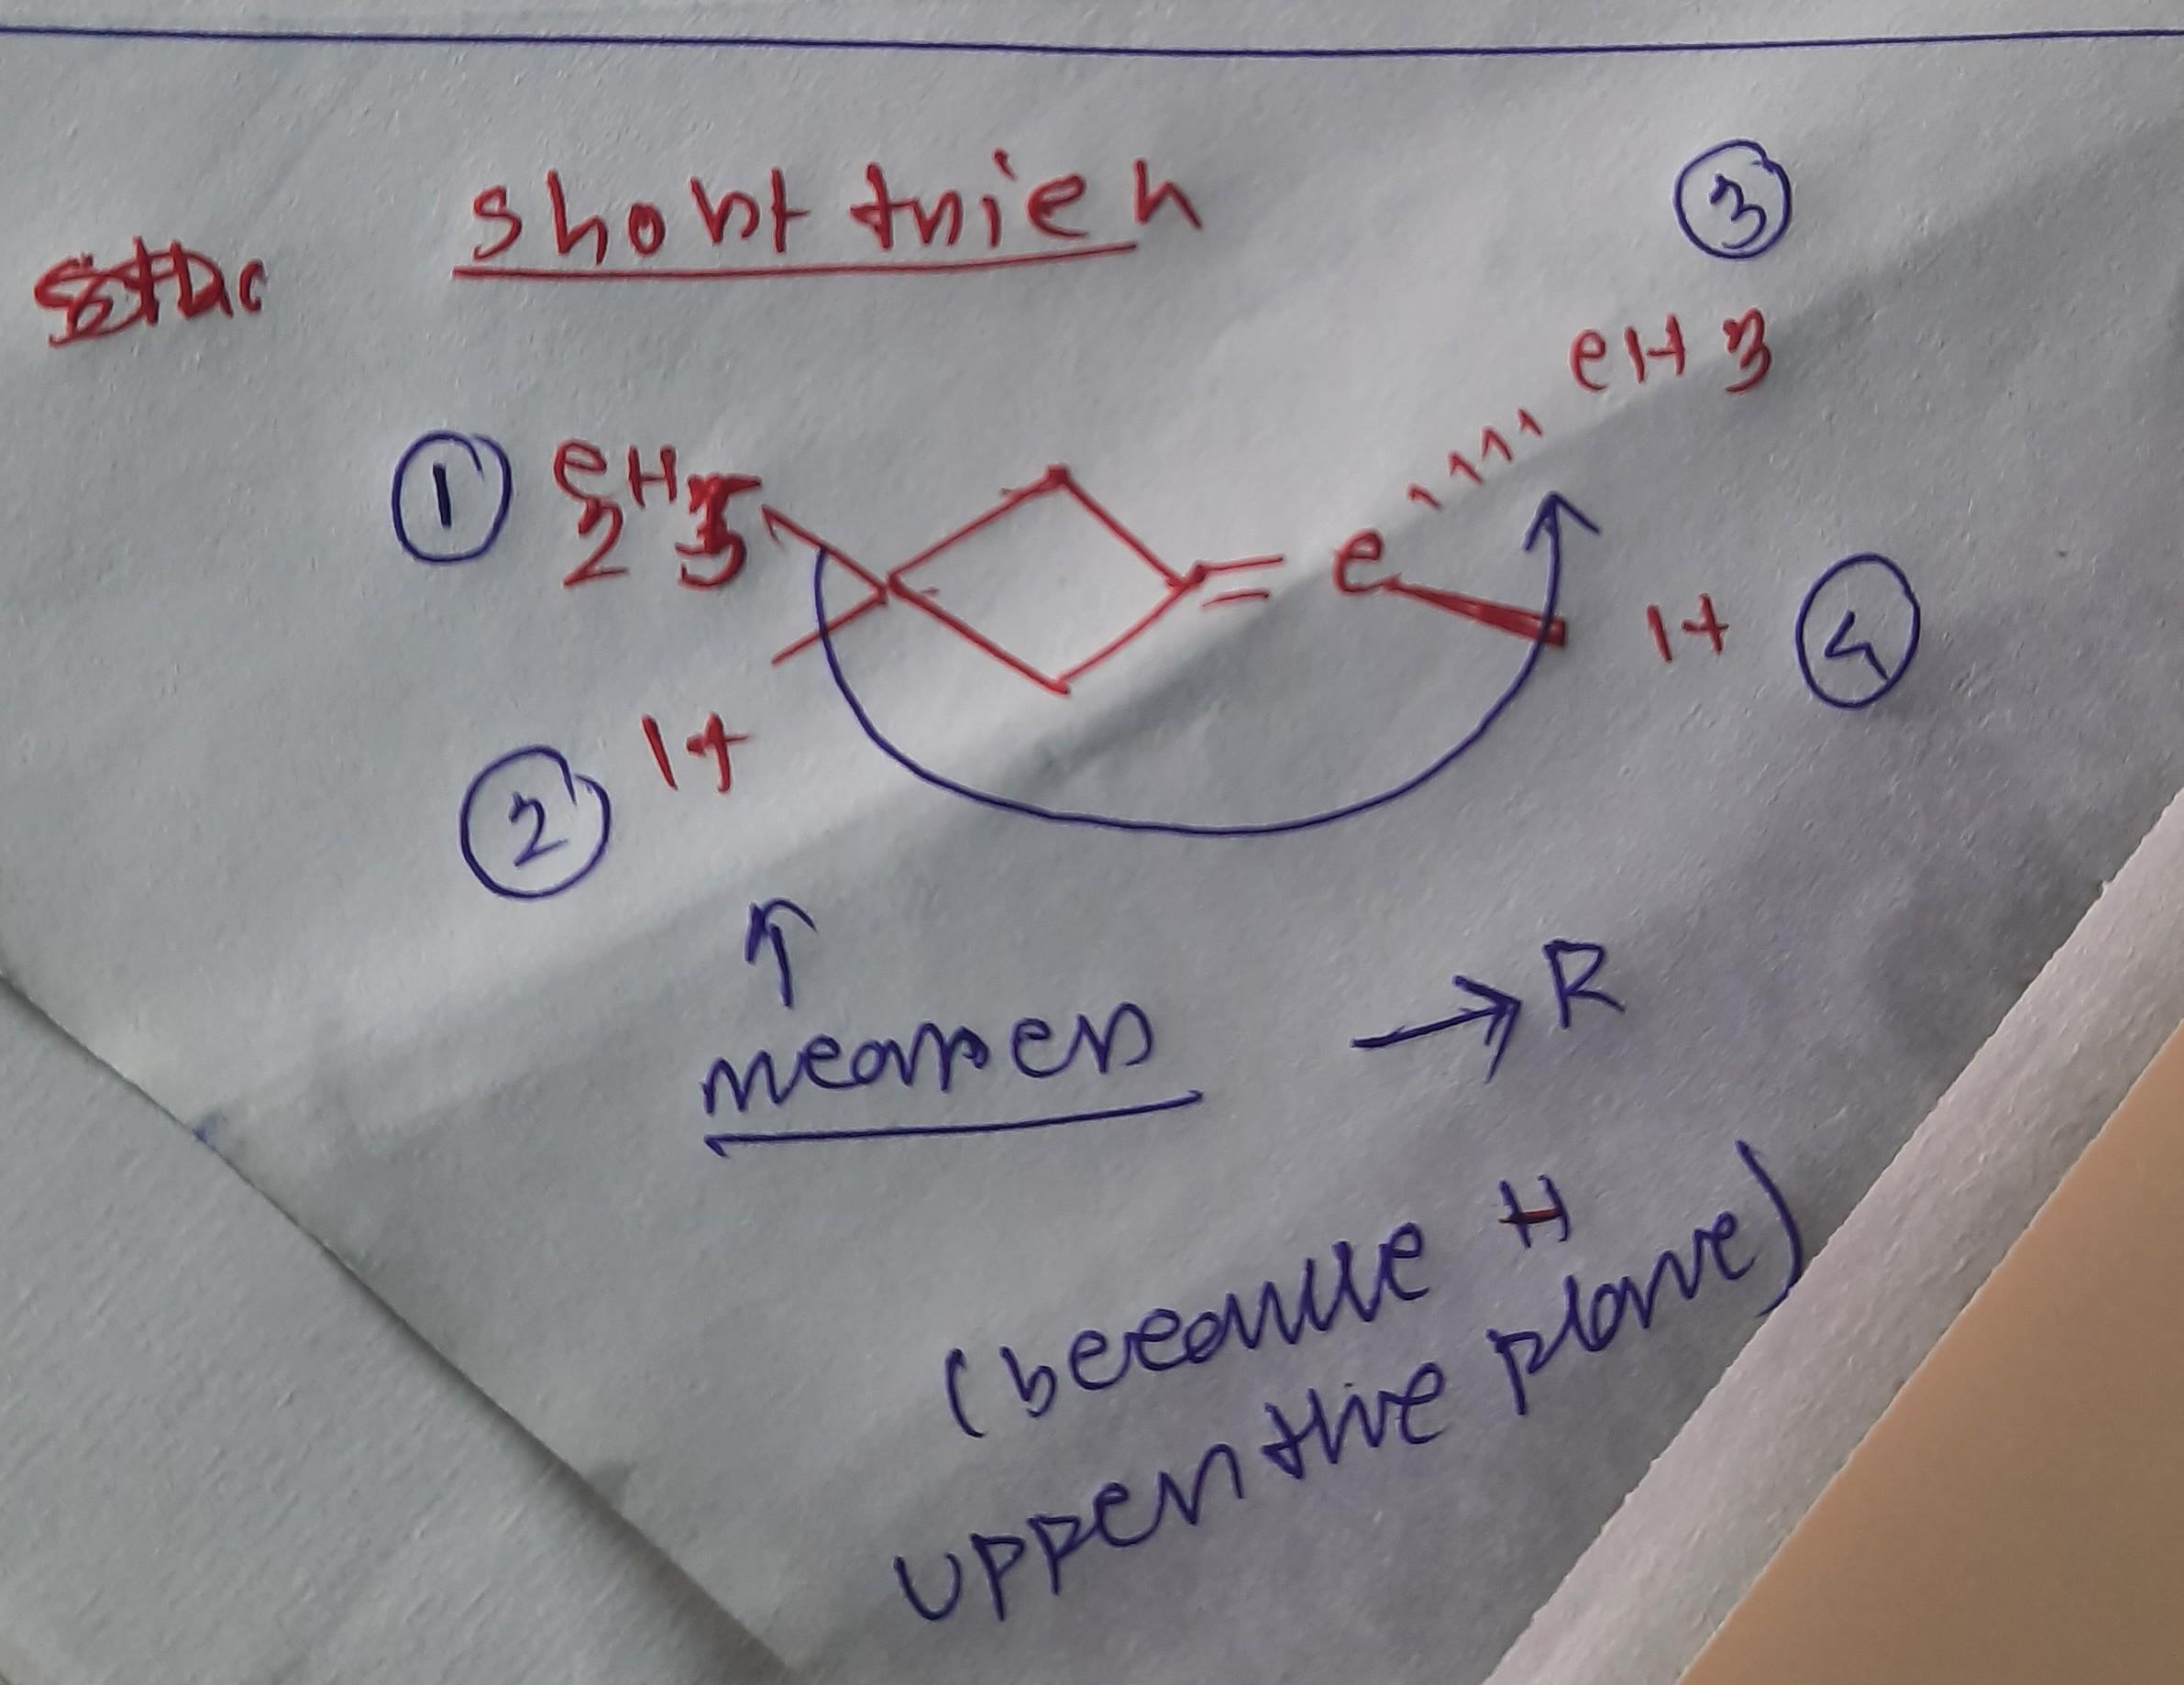 short trick
③
CH3
① C2H5
= C
H ④
② H
nearer → R
(because H
upper the plane)